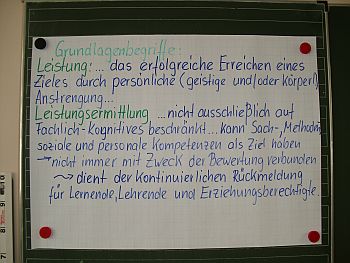 Grundlagenbegriffe:
Leistung:... das erfolgreiche Erreichen eines
Zieles durch persönliche (geistige und/oder körperl.)
Anstrengung...
Leistungsermittlung ...nicht ausschließlich auf
Fachlich-Kognitives beschränkt... kann Sach-, Methoden,
soziale und personale Kompetenzen als Ziel haben
→ nicht immer mit Zweck der Bewertung verbunden
↝ dient der Kontinuierlichen Rückmeldung
für Lernende, Lehrende und Erziehungsberechtigte.